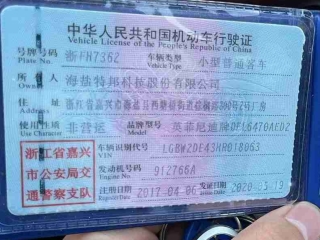 中华人民共和国机动车行驶证
Vehicle License of the People's Republic of China
号牌号码 浙FH7362 车辆类型 小型普通客车
Plate No. Vehicle Type
所有人 海盐特邦科技股份有限公司
住址 浙江省嘉兴市海盐县西塘桥街道
使用性质 非营运 品牌型号 英菲尼迪牌DFL6470AED2
浙江省嘉兴 车辆识别代号 LGBW2DE43HR018063
VIN
市公安局交 发动机号码 912766A
Engine No.
通警察支队 注册日期 2017-04-06 发证日期 2020-